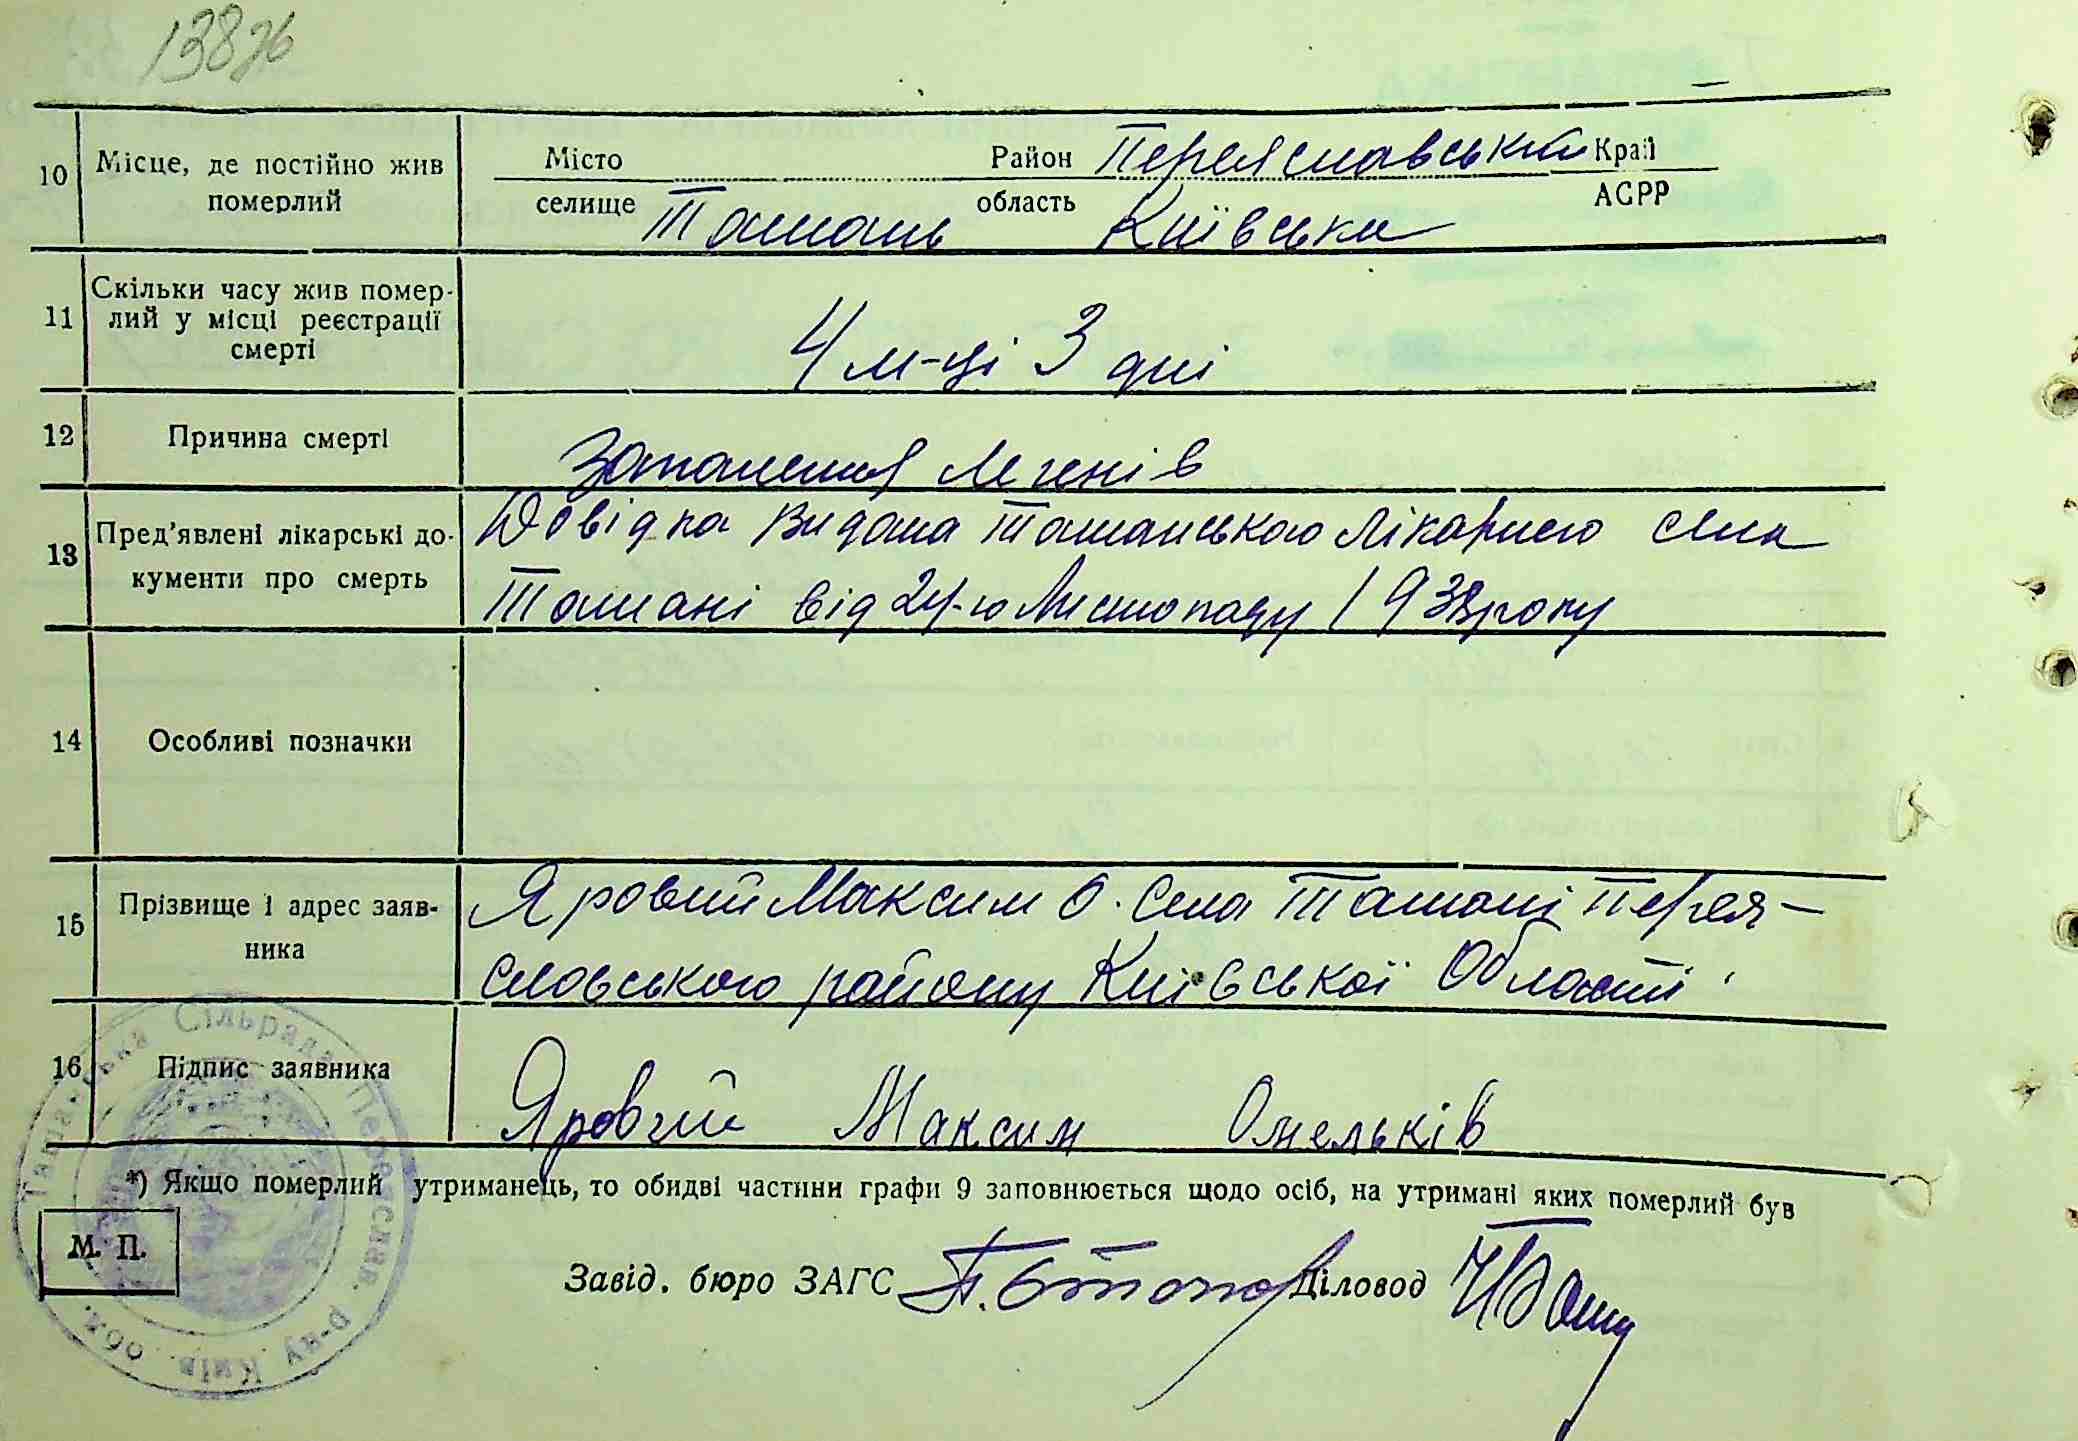 13876
10 Місце, де постійно жив померлий
Місто Район Переяславський Край
селище Ташань область Київська АСРР
11 Скільки часу жив помер-
лий у місці реєстрації
смерті
4 м-ці 3 дні
12 Причина смерті Запалення легенів
13 Пред'явлені лікарські до-
кументи про смерть
Довідка видана Ташанською лікарнею села
Ташані від 24-го Листопаду 1938 року
14 Особливі позначки
15 Прізвище і адрес заяв-
ника
Яровий Максим О. Села Ташані Перея-
славського району Київської Області
16 Підпис заявника Яровий Максим Омельків
*) Якщо померлий утриманець, то обидві частини графи 9 заповнюється щодо осіб, на утримані яких померлий був
М. П.
Завід. бюро ЗАГС Діловод
Ташанська Сільрада Переяслав. р-ну Київ. обл.